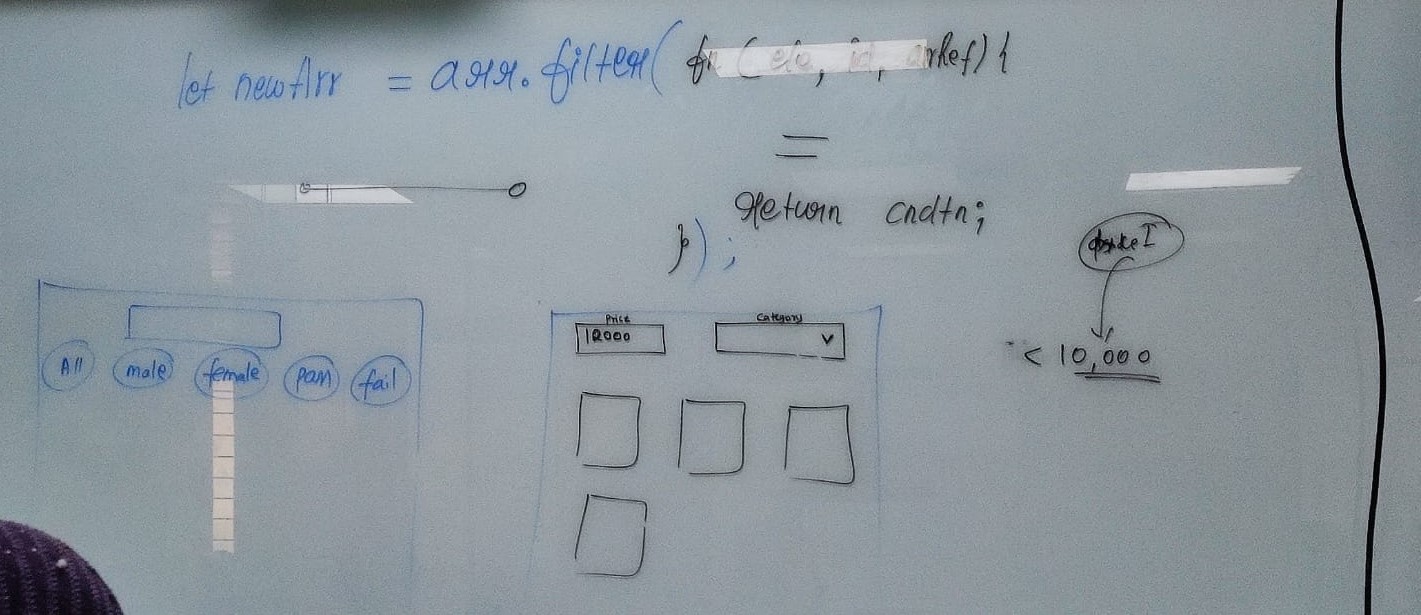 let newArr = arr.filter( fn ( ele, id, arrRef) {
return cndtn;
});
All male female pass fail
Price Category
12000 v
< 10,000